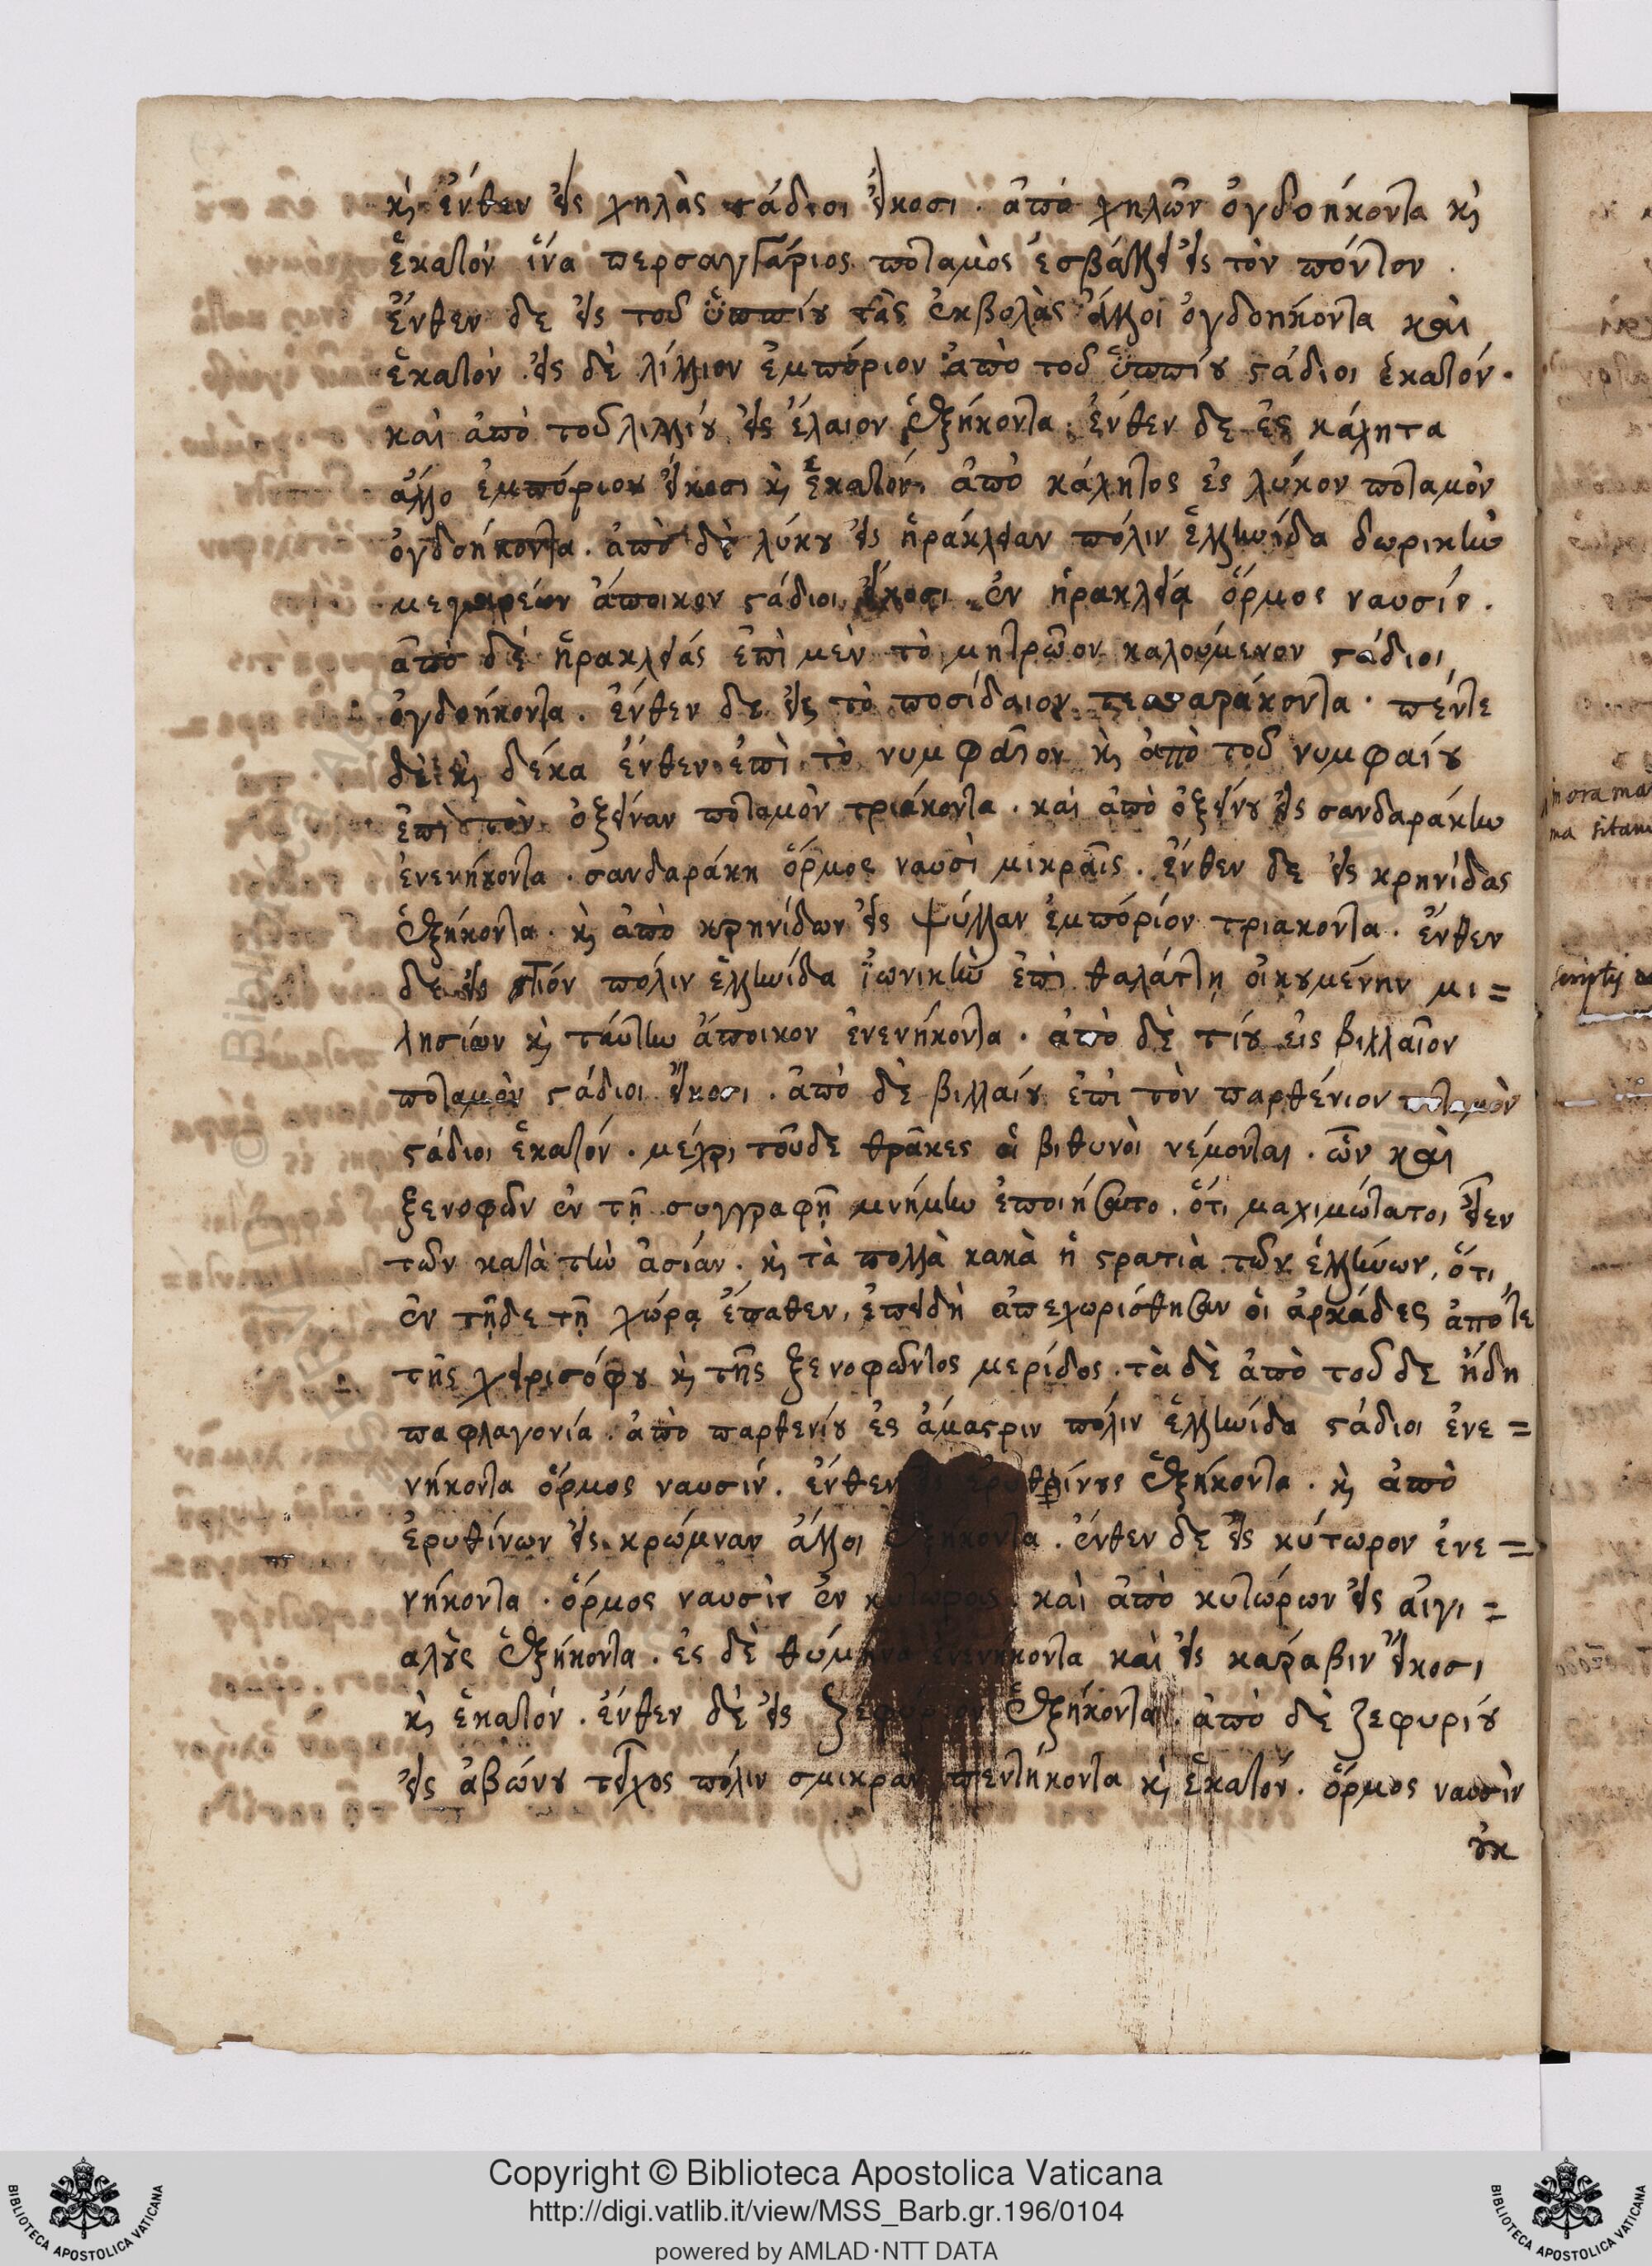 κὶ ἔνθεν εἰς χηλὰς στάδιοι εἴκοσι . ἀπὸ χηλῶν ὀγδοήκοντα κὶ
ἑκατὸν ἵνα περσαγγάριος ποταμὸς ἐσβάλλει εἰς τὸν πόντον .
ἔνθεν δε εἰς τοῦ ὑππίου τὰς ἐκβολὰς ἄλλοι ὀγδοήκοντα καὶ
ἑκατόν . εἰς δὲ λίλλιον ἐμπόριον ἀπὸ τοῦ ὑππίου στάδιοι ἑκατόν .
καὶ ἀπὸ τοῦ λιλλίου εἰς ἔλαιον ἑξήκοντα . ἔνθεν δε ἐς κάλητα
ἄλλο ἐμπόριον εἴκοσι κὶ ἑκατόν . ἀπὸ κάλητος ἐς λύκον ποταμὸν
ὀγδοήκοντα . ἀπὸ δὲ λύκου εἰς ἡράκλειαν πόλιν ἑλληνίδα δωρικὴν
μεγαρέων ἄποικον στάδιοι εἴκοσι . ἐν ἡρακλείᾳ ὅρμος ναυσίν .
ἀπὸ δὲ ἡρακλείας ἐπὶ μὲν τὸ μητρῶον καλούμενον στάδιοι
ὀγδοήκοντα . ἔνθεν δε εἰς τὸ ποσίδαιον τεσσαράκοντα . πέντε
δὲ κὶ δέκα ἔνθεν ἐπὶ τὸ νυμφαῖον κὶ ἀπὸ τοῦ νυμφαίου
ἐπὶ τὸν ὀξείναν ποταμὸν τριάκοντα . καὶ ἀπὸ ὀξείνου εἰς σανδαράκην
ἐνενήκοντα . σανδαράκη ὅρμος ναυσὶ μικραῖς . ἔνθεν δε εἰς κρηνίδας
ἑξήκοντα . κὶ ἀπὸ κρηνίδων εἰς ψύλλαν ἐμπόριον τριακοντα . ἔνθεν
δε εἰς τίον πόλιν ἑλληνίδα ἰωνικὴν ἐπὶ θαλάττῃ οἰκουμένην μι=
λησίων κὶ ταύτην ἄποικον ἐνενήκοντα . ἀπὸ δὲ τίου εἰς βιλλαῖον
ποταμὸν στάδιοι εἴκοσι . ἀπὸ δὲ βιλλαίου ἐπὶ τὸν παρθένιον ποταμὸν
στάδιοι ἑκατόν . μέχρι τοῦδε θρᾶκες οἱ βιθυνοὶ νέμονται . ὧν καὶ
ξενοφῶν ἐν τῇ συγγραφῇ μνήμην ἐποιήσατο . ὅτι μαχιμώτατοι εἶεν
τῶν κατὰ τὴν ἀσίαν . κὶ τὰ πολλὰ κακὰ ἡ στρατιὰ τῶν ἑλλήνων , ὅτι
ἐν τῇδε τῇ χώρᾳ ἔπαθεν , ἐπειδὴ ἀπεχωρίσθησαν οἱ ἀρκάδες ἀπό τε
τῆς χειρισόφου κὶ τῆς ξενοφῶντος μερίδος . τὰ δὲ ἀπὸ τοῦδε ἤδη
παφλαγονία . ἀπὸ παρθενίου ἐς ἄμαστριν πόλιν ἑλληνίδα στάδιοι ἐνε =
νήκοντα ὅρμος ναυσίν . ἔνθεν ἐρυθρίνους ἑξήκοντα . κὶ ἀπὸ
ἐρυθίνων εἰς κρώμναν ἄλλοι ἑξήκοντα . ἔνθεν δε εἰς κύτωρον ἐνε =
νήκοντα . ὅρμος ναυσὶν ἐν κυτώροις . καὶ ἀπὸ κυτώρων εἰς αἰγι =
αλοὺς ἑξήκοντα . ἐς δὲ θύμηνα ἐνενήκοντα καὶ εἰς κάραβιν εἴκοσι
κὶ ἑκατόν . ἔνθεν δὲ εἰς ζεφύριον ἑξήκοντα . ἀπὸ δὲ ζεφυρίου
εἰς ἀβώνου τεῖχος πόλιν σμικράν πεντήκοντα κὶ ἑκατόν . ὅρμος ναυσὶν
οὐκ
Copyright © Biblioteca Apostolica Vaticana
http://digi.vatlib.it/view/MSS_Barb.gr.196/0104
powered by AMLAD·NTT DATA